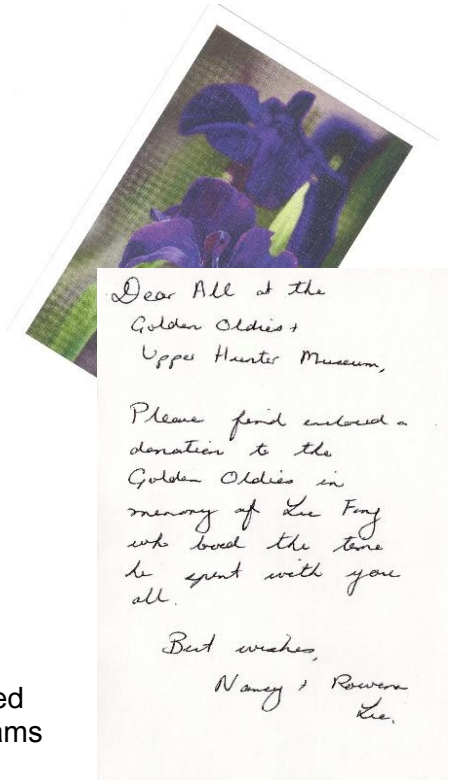 Dear All at the
Golden Oldies +
Upper Hunter Museum,
Please find enclosed a
donation to the
Golden Oldies in
memory of Lee Fong
who loved the time
he spent with you
all.
Best wishes,
Nancy + Rowena
Lee.
ed
ams